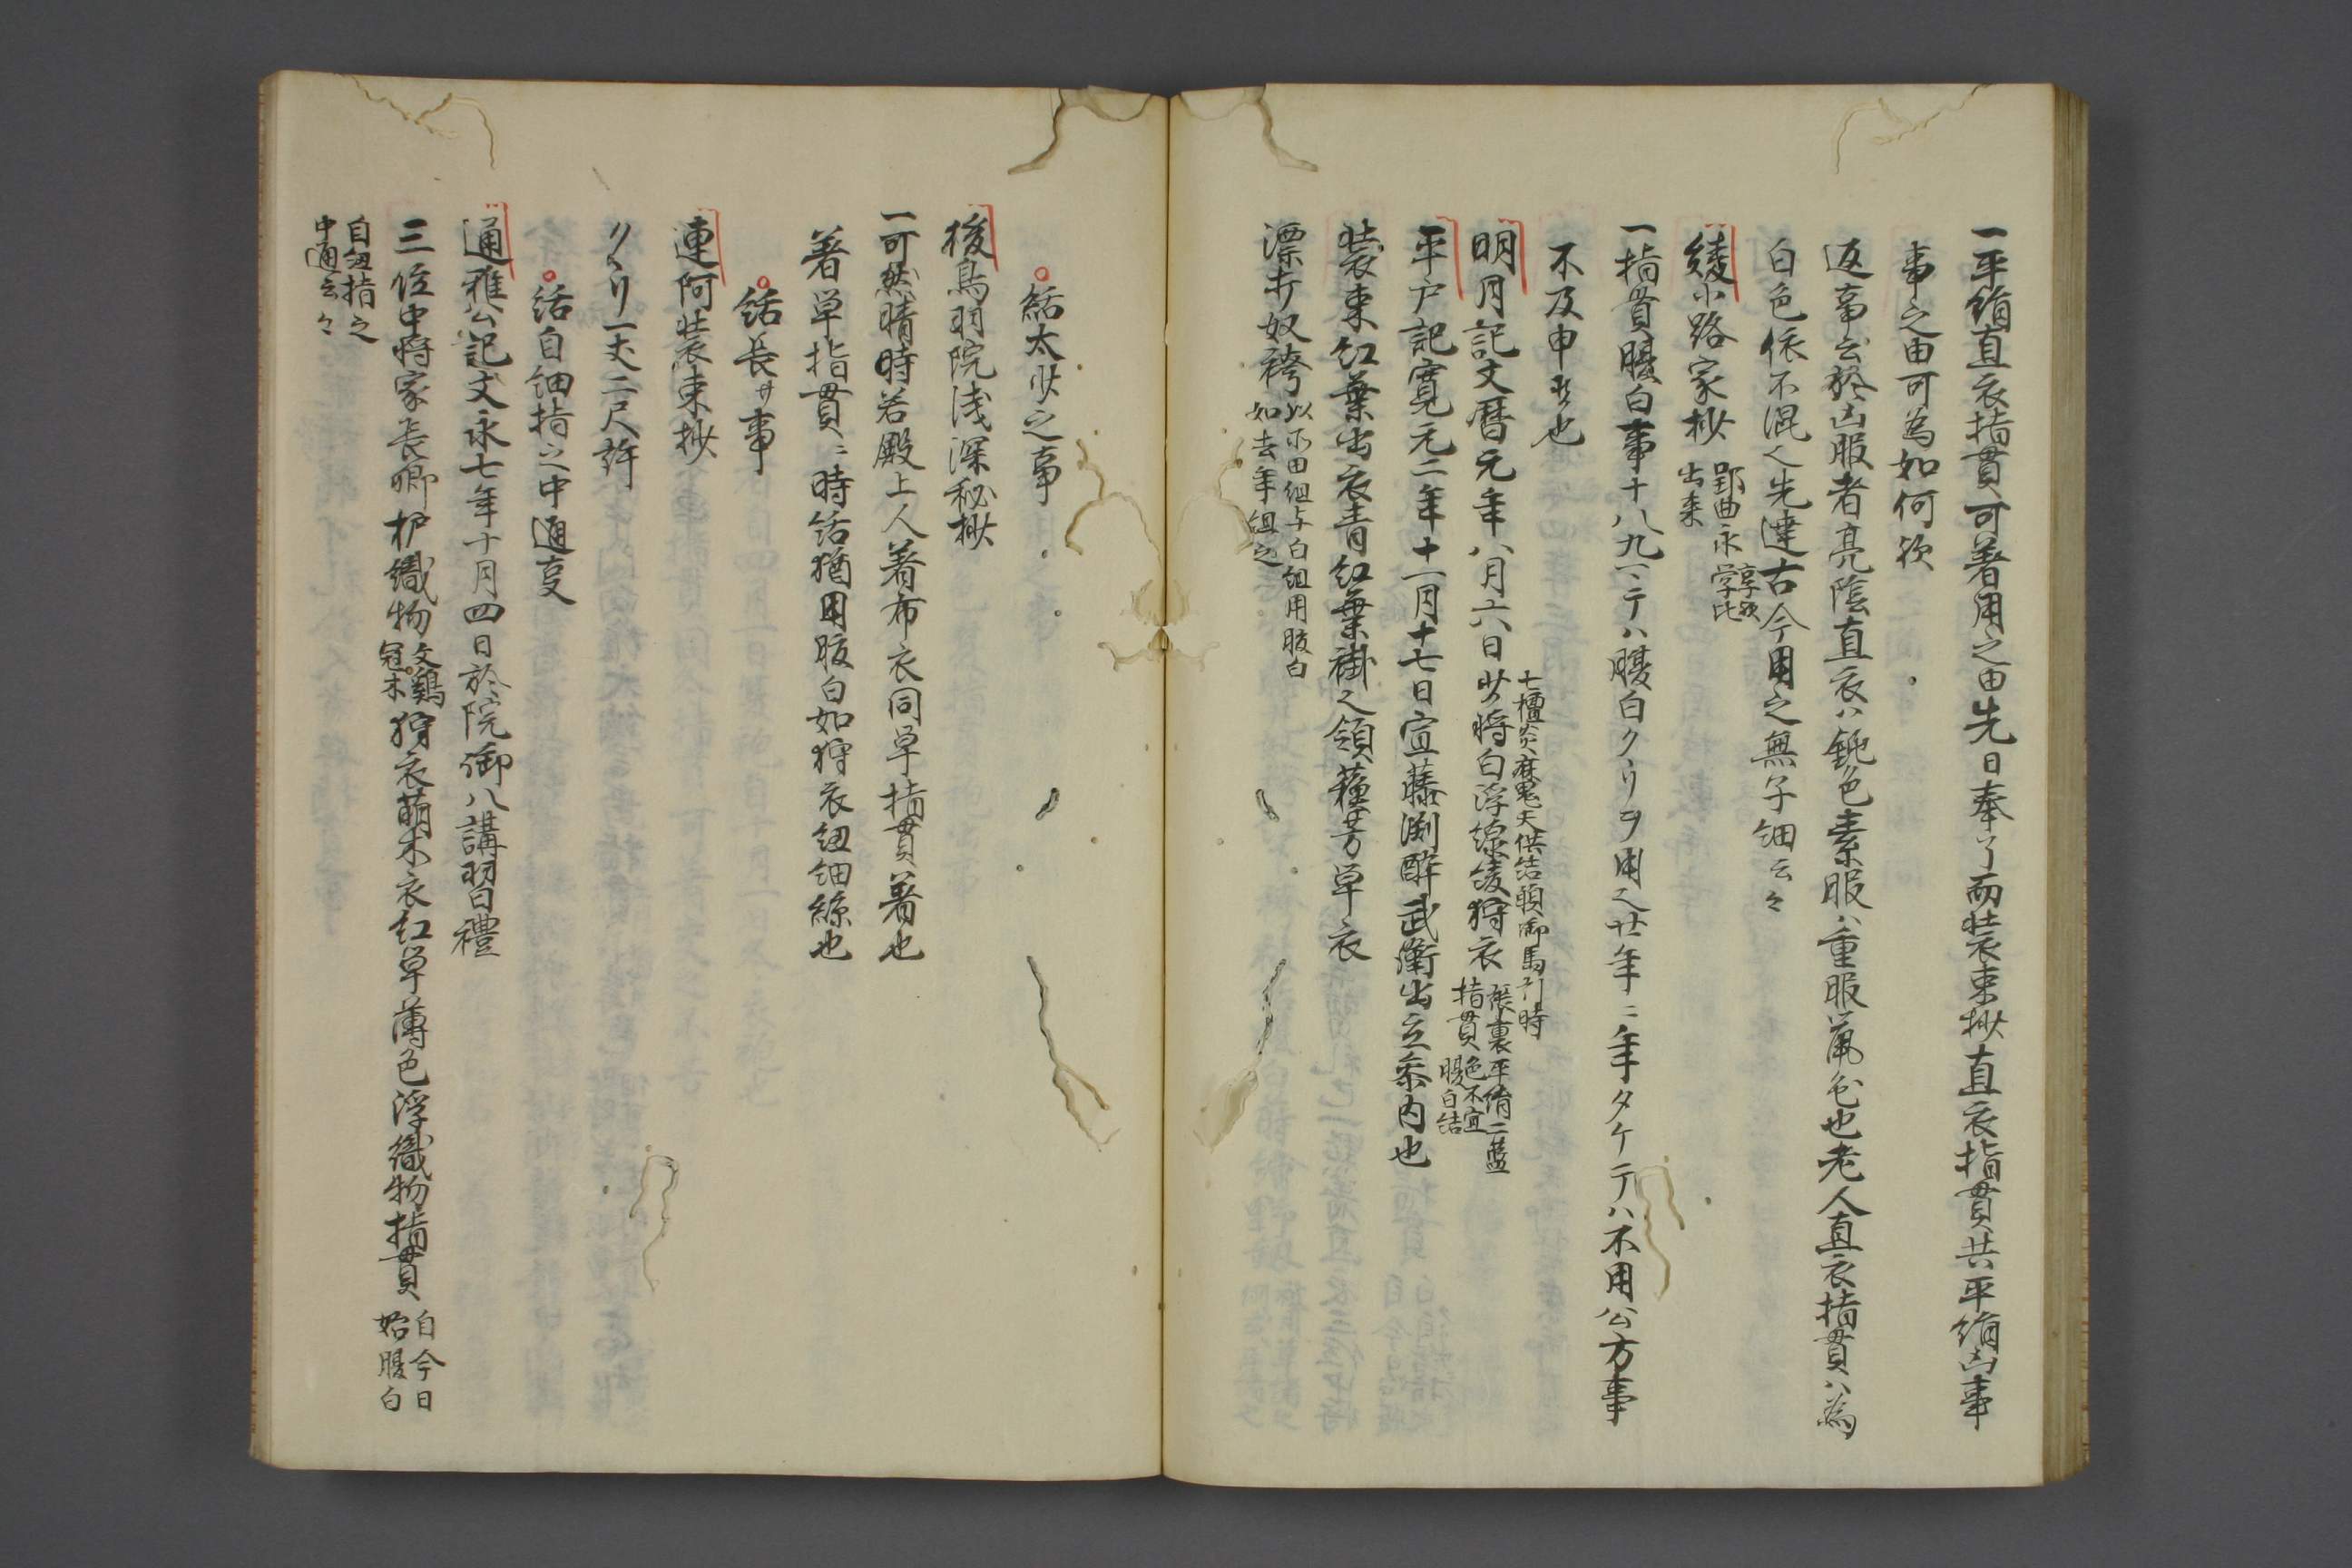 一平絹直衣指貫可着用之由先日奉了而装束抄直衣指貫共平絹凶事
事之由可為如何歟
返事云於凶服者亮陰直衣ハ鈍色素服ハ重服薫色也老人直衣指貫ハ為
白色依不混之先達古今用之無子細云々
綾小路家抄 郢曲永享歟 出来 堂比
一指貫腹白事十八九ニテハ腹白クヽリヲ用之廿年ニ年タケテハ不用公方事
不及申者也
七壇炎魔天供結願御馬引時
明月記文暦元年八月六日少将白浮線綾狩衣 張裏平絹二藍 指貫色不宜 腹白結
平戸記寛元二年十一月十七日宣藤渕酔武衛出立参内也
装束紅葉出衣青紅葉襪之領蘇芳単衣
漂打奴袴 以不田組与白組用腹白 如去年組之
。結太サ之事
後鳥羽院浅深秘抄
一可然晴時若殿上人着布衣同単指貫着也
着単指貫ニ時結猶用腹白如狩衣紐細絲也
。結長サ事
連阿装束抄
クヽリ一丈二尺許
。結自細指之中通事
通雅公記文永七年十月四日於院御八講習禮
三位中将家長卿枦織物 文鶏 冠木 狩衣萌木衣紅単薄色浮織物指貫 自今日 始腹白
自紐指之
中通云々